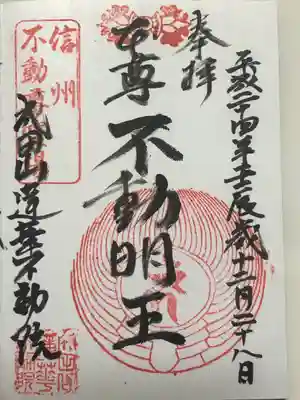 平成二十四年壬辰歳十二月二十八日
奉拝
尊不動明王
信州
不動
成田山
不動院